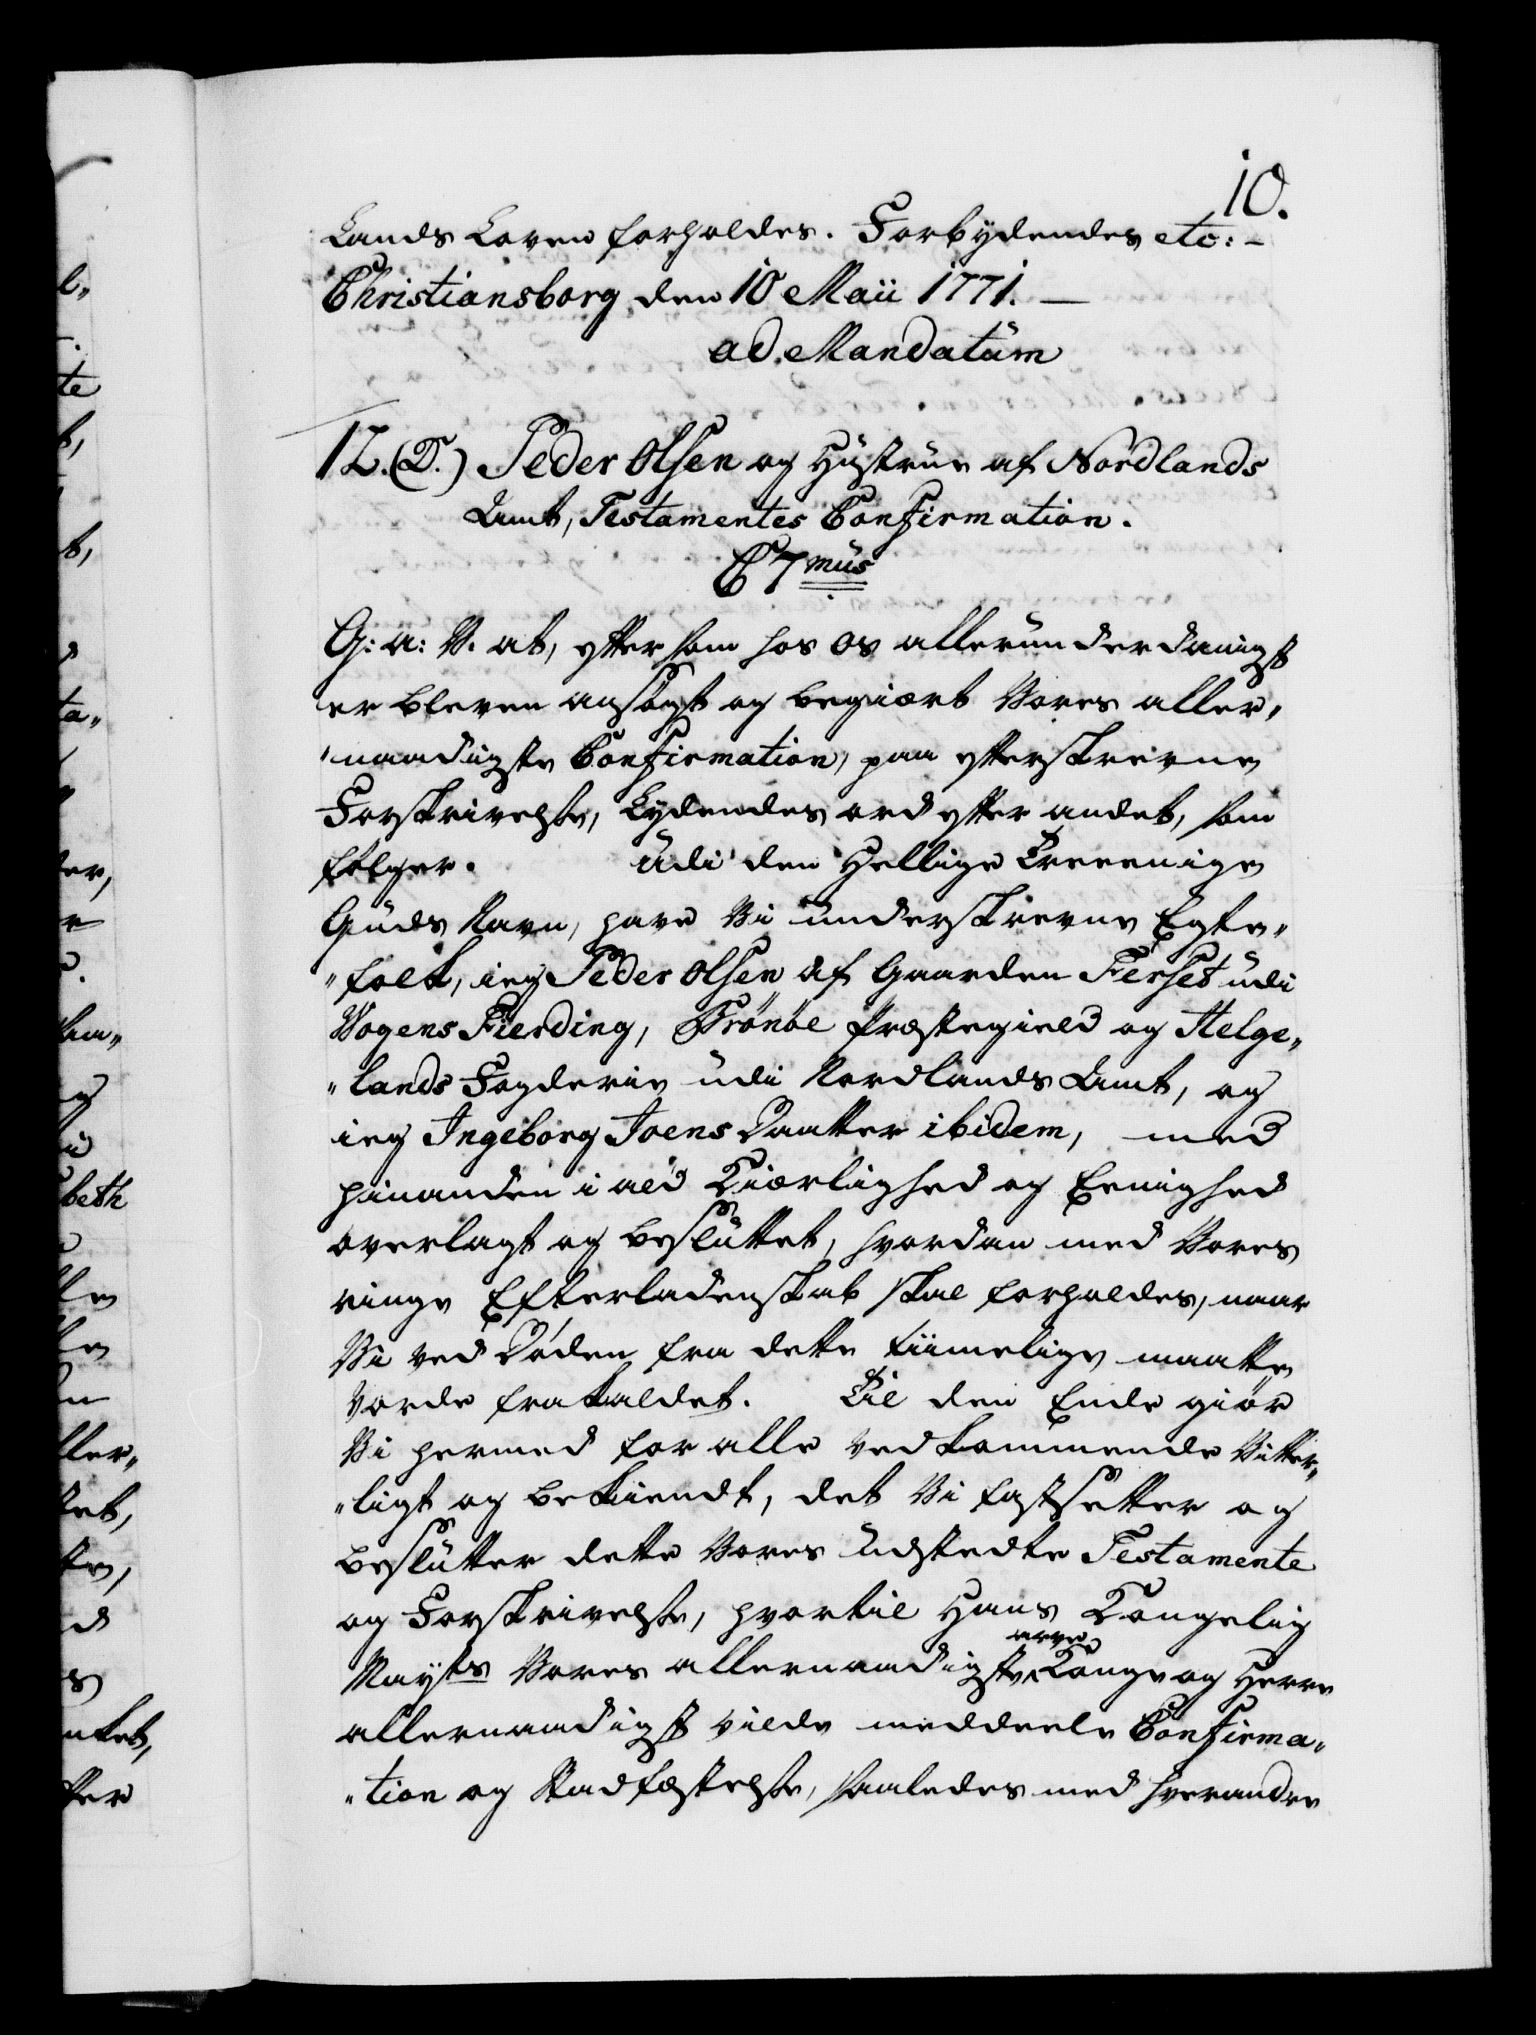 10.
Lands Loven forholdes. Forbydendes etc: –
Christiansborg den 10 Maii 1771. –
ad Mandatum
12. (T.) Peder Olsen og Hustrue af Nordlands
Amt, Testamentes Confirmation.
C 7mus
G: a: V. at, efftersom hos os allerunderdanigst
er bleven ansøgt og begiært Vores aller„
„naadigste Confirmation, paa effterskrevne
Forskrivelse, Lydendes ord effter andet, som
følger. Udi den Hellige Treeenige
Guds Navn, have Vi underskrevne Egte„
„folk, ieg Peder Olsen af Gaarden Ferset udi
Wogens Fierding, Brönöe Præstegield og Helge„
„lands Fogderie udi Nordlands Amt, og
ieg Ingeborg Joens Daatter ibidem, med
hinanden i ald Kiærlighed og Eenighed
overlagt og besluttet, hvordan med Vores
ringe Efterladenskab skal forholdes, naar
Vi ved Døden fra dette tiimelige maatte
vorde frakaldet. Til den Ende giør
Vi hermed for alle vedkommende Vitter„
„ligt og bekiendt, det Vi fastsetter og
beslutter dette Vores udstedte Testamente
og Forskrivelse, hvortil Hans Kongelig
Mayts Vores allernaadigste arve Konge og Herre
allernaadigst vilde meddeele Confirma„
„tion og Stadfæstelse, saaledes med hverandre